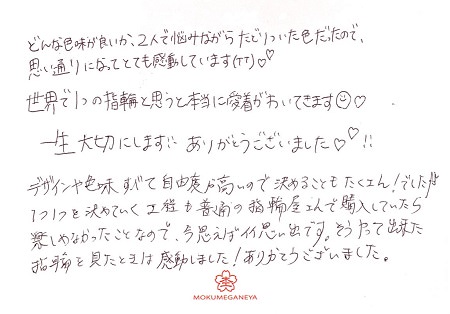 どんな色味が良いか、2人で悩みながらたどりついた色だったので、
思い通りになってとても感動しています(TT)♡♡
世界で1つの指輪と思うと本当に愛着がわいてきます☺♡
一生大切にします!! ありがとうございました♡♡!!
デザインや色味、すべて自由度が高いので決めることもたくさん!でしたが
1つ1つを決めていく工程も普通の指輪屋さんで購入していたら
楽しめなかったことなので、今思えばイイ思い出です。そうやって出来た
指輪を見たときは感動しました!ありがとうございました。
MOKUMEGANEYA